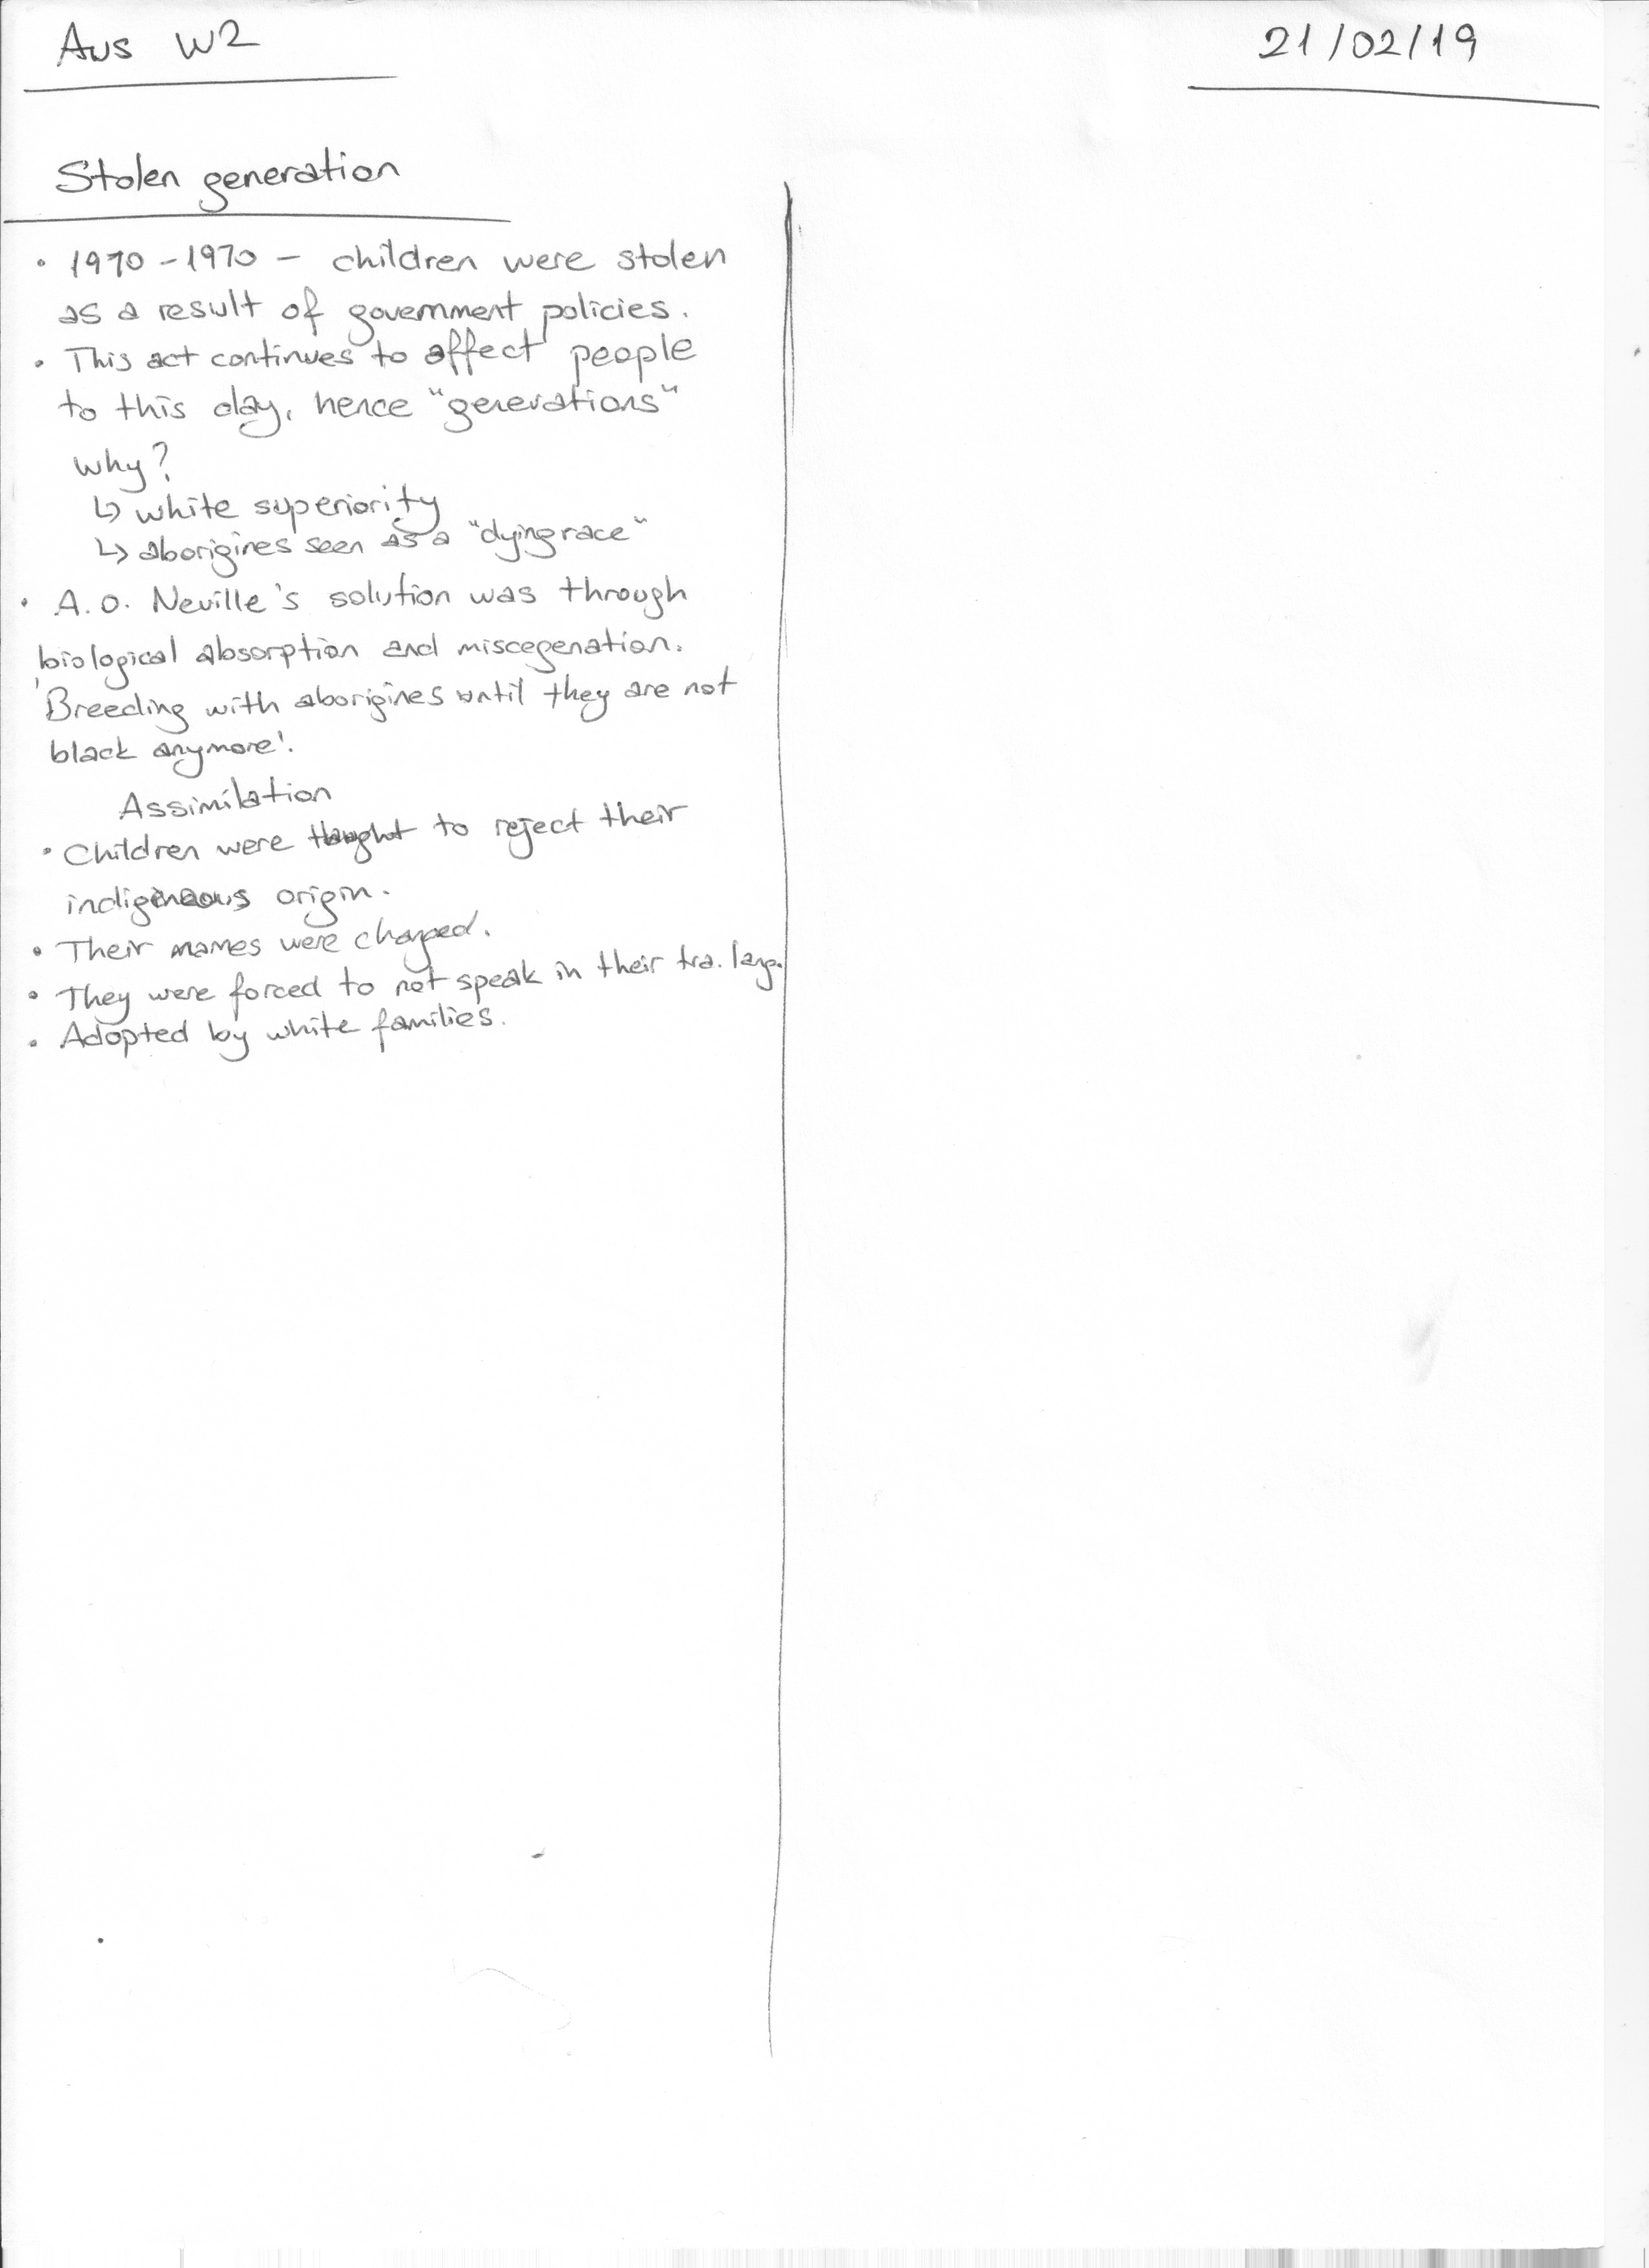 Aus W2
21/02/19
Stolen generation
• 1970 - 1970 - children were stolen
as a result of government policies.
• This act continues to affect people
to this day, hence "generations"
why?
↳ white superiority
↳ aborigines seen as a "dying race"
• A.O. Neville's solution was through
biological absorption and miscegenation.
'Breeding with aborigines until they are not
black anymore'.
Assimilation
• Children were thought to reject their
indigenous origin.
• Their names were changed.
• They were forced to not speak in their tra. lang.
• Adopted by white families.